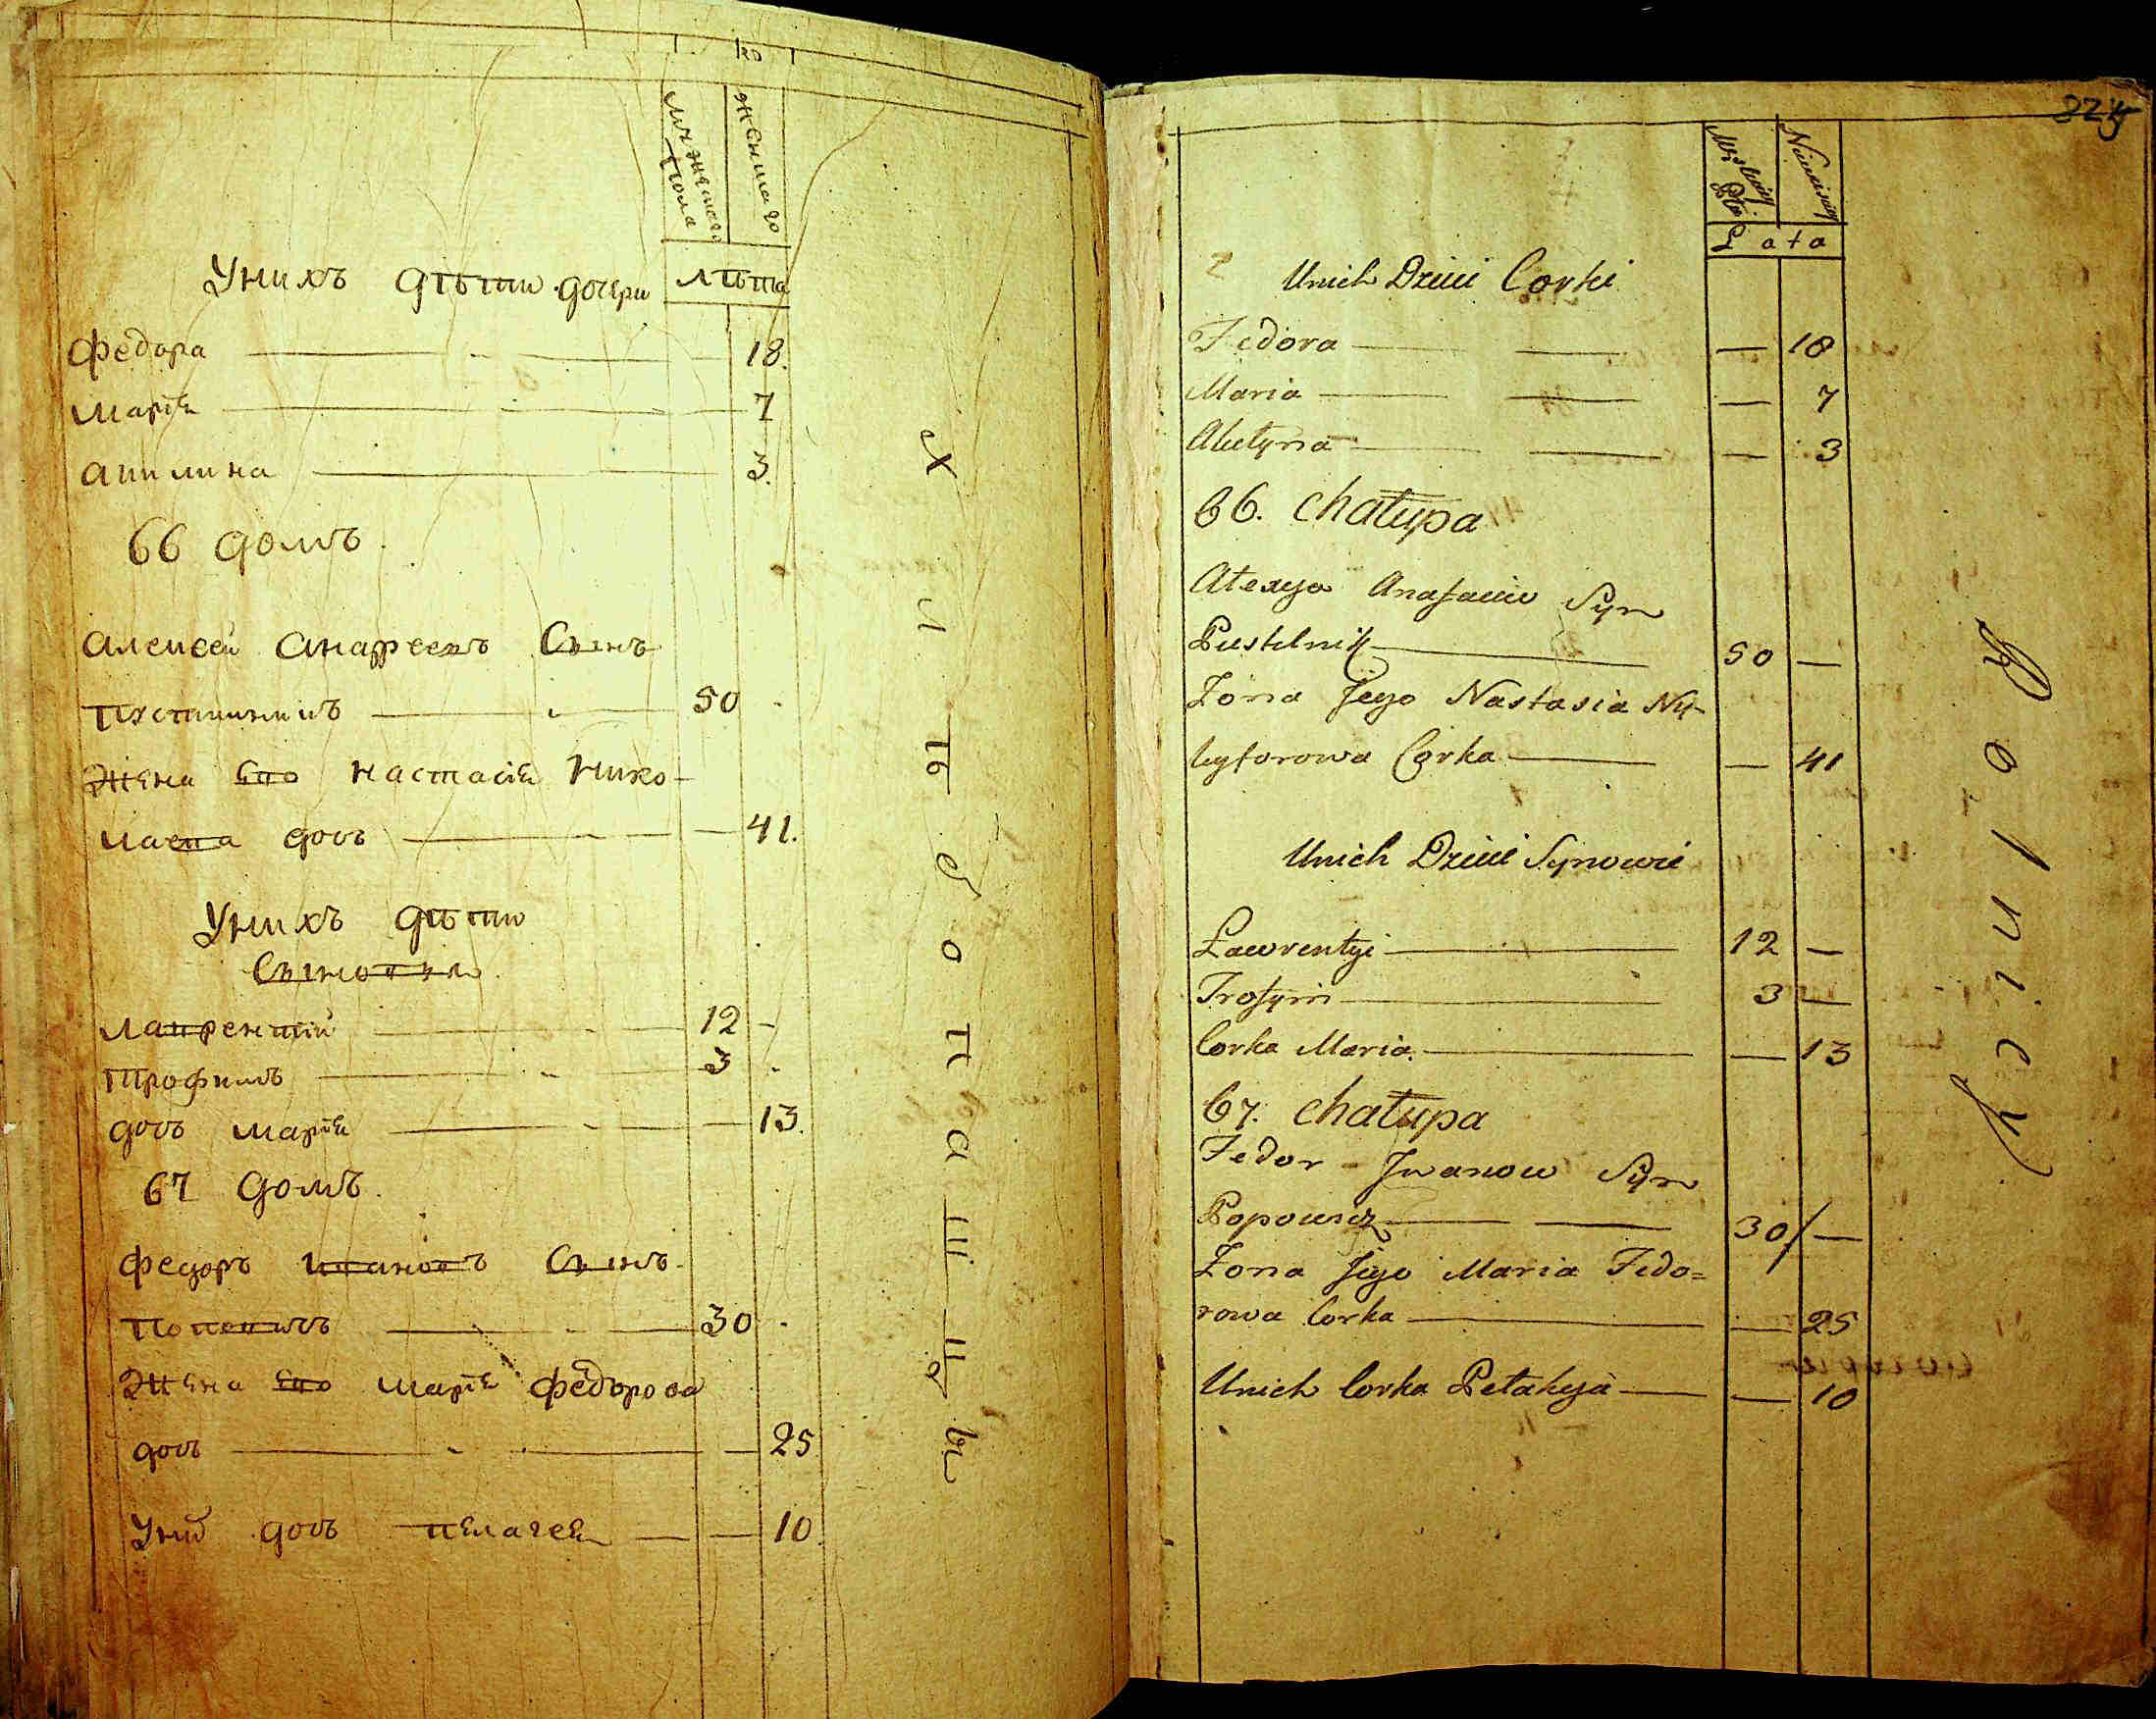 мужеска
пола
женска го
лѣта
Унихъ дѣти дочери
Федора 18.
Марія 7
Акилина 3.
66 домъ
Алексей Андреевъ Сынъ
Пустилникъ 50
Жена Его Настасія Нико-
лаева дочь 41.
Унихъ дѣти
Сыновья
Лаврентій 12 -
Трофимъ 3
дочь Марія 13.
67 домъ.
Федоръ Ивановъ Сынъ
Поповичъ 30
Жена Его Марія Федорова
дочь 25
Уних дочь Пелагея 10
хлѣбопашцы
324
Męskiey
Płci
Niewieściey
Lata
Unich Dzieci Corki
Fedora — 18
Maria — 7
Akulyna — 3
66. chałupa
Alexya Anafaiew Syn
Pustelnik 50 —
Zona Jego Nastasia Ny-
kyforowa Corka — 41
Unich Dzieci Synowie
Ławrentyi 12 —
Trofym 3 —
Corka Maria — 13
67. chałupa
Fedor Jwanow Syn
Popowicz 30 —
Zona Jego Maria Fedo=
rowa Corka — 25
Unich Corka Pełahyja — 10
Rolnicy